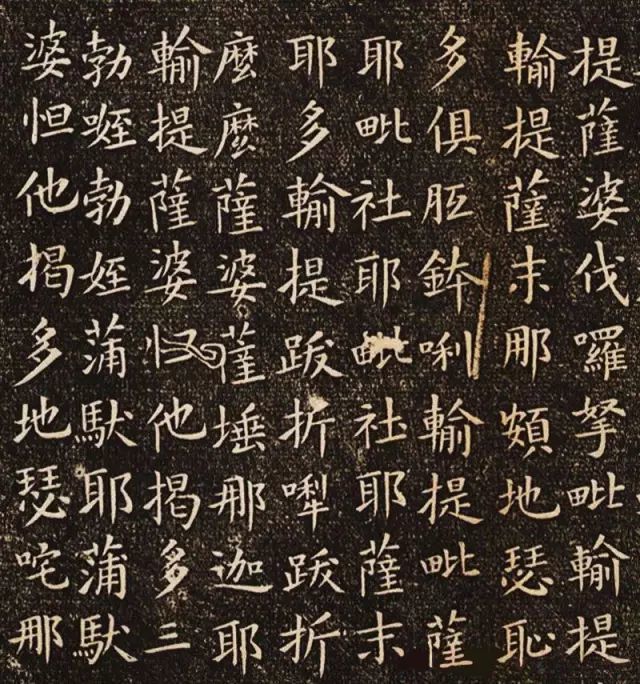 提薩婆伐囉拏毗輸提
輸提薩末那頞地瑟恥
多俱胝鉢唎輸提毗薩
耶毗社耶毗社耶薩末
耶多輸提跋折㘑跋折
麼麼薩婆薩埵那迦耶
輸提薩婆他揭多三
勃勃姪蒲馱耶蒲馱
婆怛他揭多地瑟咤那